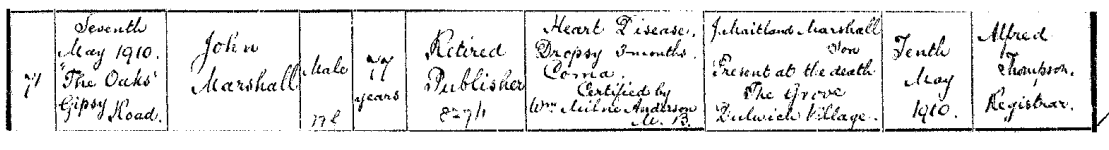 7
Seventh
May 1910.
"The Oaks"
Gipsy Road.
John
Marshall
Male
77
years
Retired
Publisher
Heart Disease.
Dropsy 3 months.
Coma.
Certified by
Wm. Milne Anderson
M. B.
J. Maitland Marshall
Son
Present at the death
The Grove
Dulwich Village.
Tenth
May
1910.
Alfred
Thompson.
Registrar.